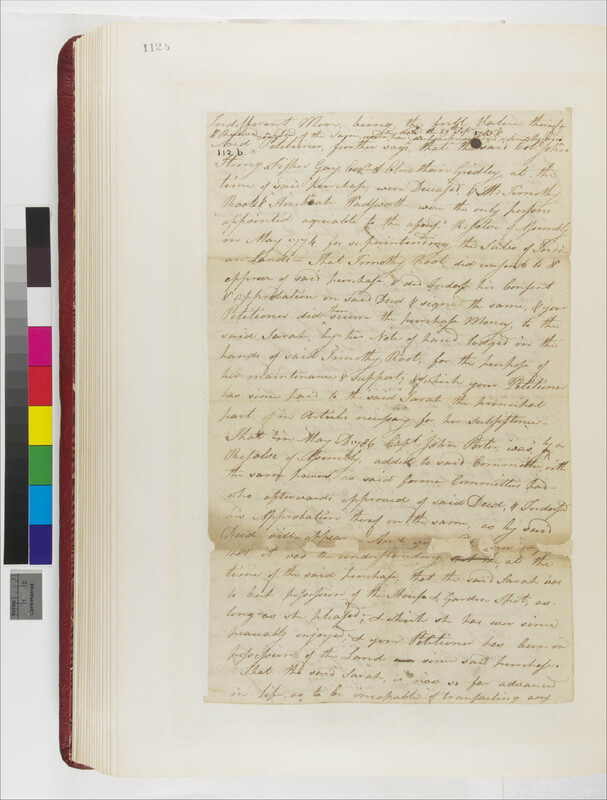 1125
Indifferent Men, being the full Value thereof
112 b.
And Petitioner, further says, that the said Colo John
Strong, Fisher Gay, Esqr & Elnathan Gridley, at the
time of said purchase, were Deceased, & Mr. Timothy
Root & Hezekiah Wadsworth were the only persons
appointed agreable to the Resolve of Assembly
in May 1774 for superintending the Sales of
Lands - That Timothy Root did consent to &
approve of said purchase, & did Indorse his Consent
& approbation on said Deed & signe the same, & your
Petitioner did secure the purchase Money, to the
said Sarah, by his Note of hand, lodged in the
hands of said Timothy Root, for the purpose of
her maintenance & Support; & which your Petitioner
has since paid to the said Sarah the principal
part, in Articles necessary for her Subsistence -
That in May 1786 Capt John Porter, was, by a
Resolve of Assembly, added to said Committee, with
the same powers as said former Committee had -
who afterwards approved of said Deed, & Indorsed
his Approbation thereof on the same, as by said
Deed will appear. And
that it was the understanding at the
time of the said purchase, that the said Sarah was
to keep possession of the House & Garden Spot, as
long as she pleased; & which she has ever since
peaceably enjoyed, & your Petitioner has been in
possession of the Land since said purchase.
That the said Sarah, is now so far advanced
in life, as to be incapable of transacting any
Centimetres